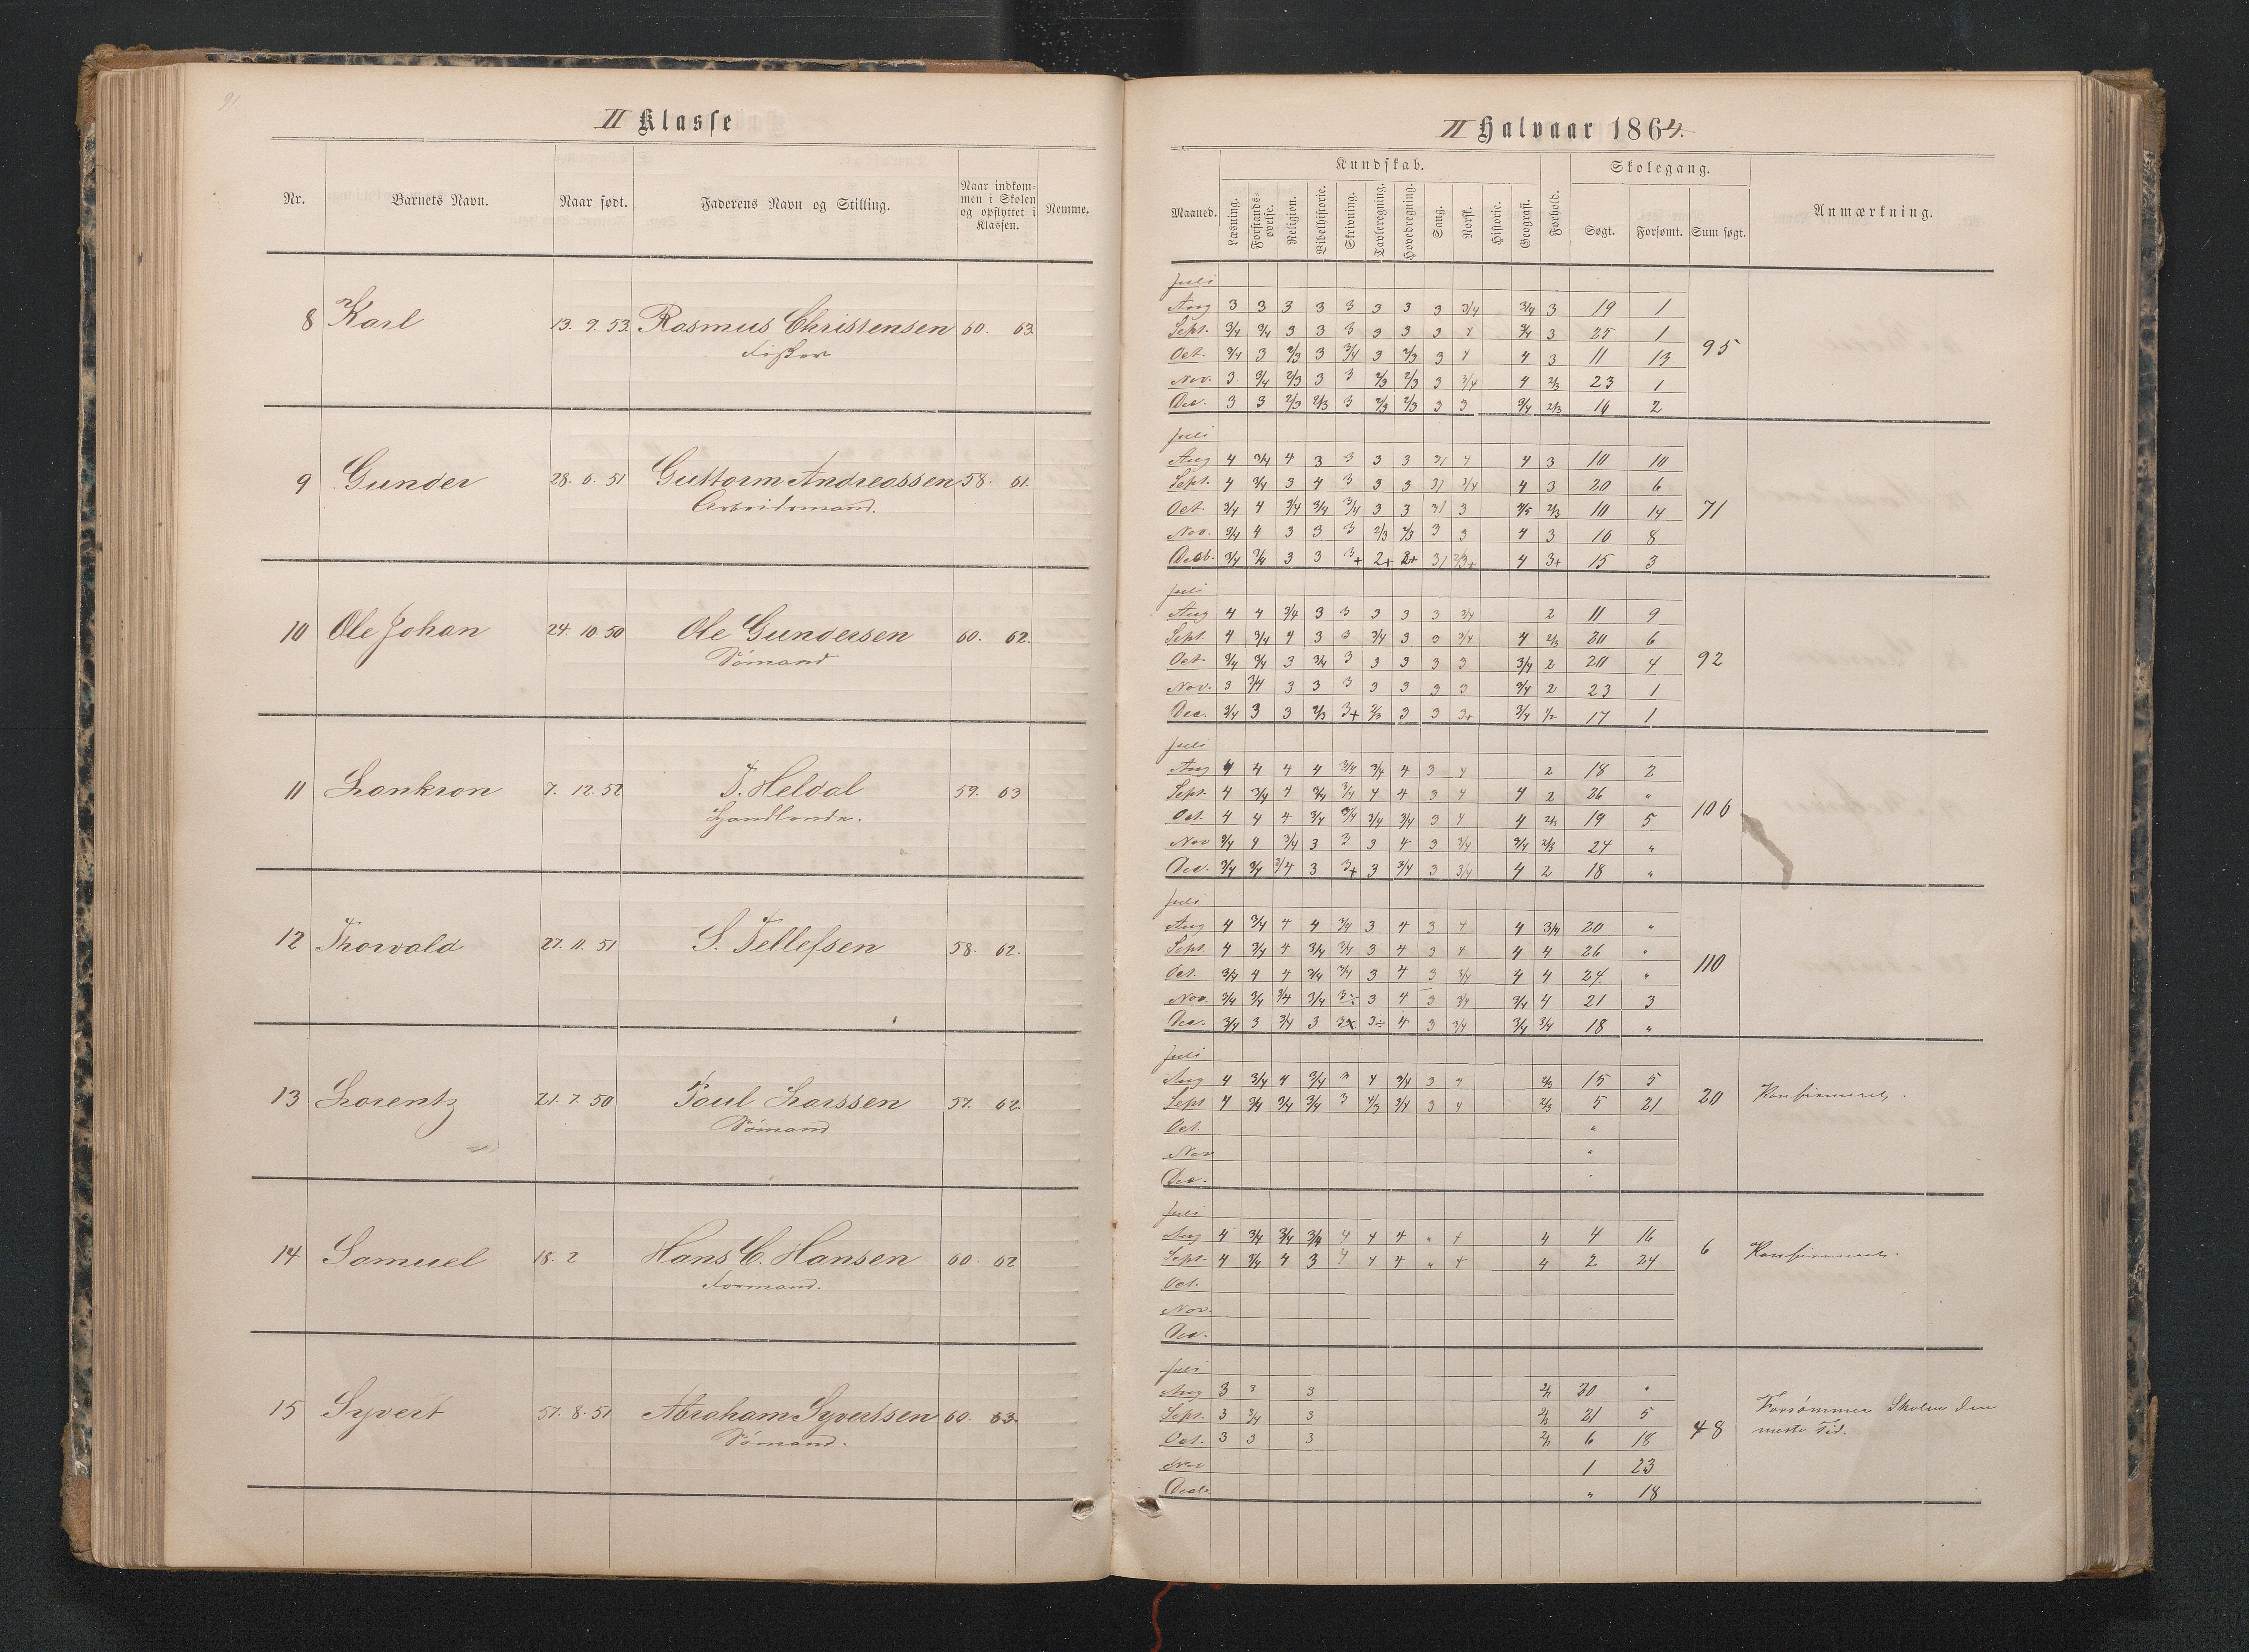 91.
II Klasse
Nr. Barnets Navn. Naar født. Faderens Navn og Stilling. Naar indkommen i Skolen og opflyttet i Klassen. Nemme.
8 Karl 13. 9. 53. Rasmus Christensen 60. 63.
Fisker
9 Gunder 28. 6. 51 Guttorm Andreassen 58. 61.
Arbeidsmand.
10 Ole Johan 24. 10. 50 Ole Gundersen 60. 62.
Sømand
11 7. 12. 52 T. Heldal 59. 63
Handlende.
12 Thorvald 27. 11. 51 S. Tellefsen 58. 62.
13 Lorentz 21. 7. 50 Poul Larssen 57. 62.
Sømand
14 Samuel 18. 2 Hans C. Hansen 60. 62
Formand.
15 Syvert 8. 51 Abraham Syvertsen 60. 63.
Sømand.
II Halvaar 1864.
Kundskab. Skolegang.
Maaned. Læsning. Forstandsøvelse. Religion. Bibelhistorie. Skrivning. Tavleregning. Hovedregning. Sang. Norsk. Historie. Geografi. Forhold. Søgt. Forsømt. Sum søgt. Anmærkning.
Juli
Aug 3 3 3 3 3 3 3 3 3/4 3/4 3 19 1
Sept. 3/4 3/4 3 3 3 3 3 3 4 3/4 3 25 1
Oct. 3/4 3 2/3 3 3/4 3 2/3 3 4 4 3 11 13 95
Nov. 3 3/4 2/3 3 3 2/3 2/3 3 3/4 4 2/3 23 1
Dec. 3 3 2/3 2/3 3 2/3 2/3 3 3 3/4 2/3 16 2
Juli
Aug 4 3/4 4 3 3 3 3 4 4 3 10 10
Sept. 4 3/4 3 4 3 3 3 3/4 4 3 20 6
Oct. 3/4 4 3/4 3/4 3/4 3 3 3 2/3 10 14 71
Nov. 3/4 4 3 3 3 2/3 2/3 3 3 4 3 16 8
Decb. 3/4 3/4 3 3 3+ 2+ 2+ 4 3+ 15 3
Juli
Aug 4 4 3/4 3 3 3 3 3 3/4 2 11 9
Sept. 4 3/4 4 3 3 3/4 3 3 3/4 4 2/3 20 6
Oct. 3/4 3/4 3 3/4 3 3 3 3 3 3/4 2 20 4 92
Nov. 3 3/4 3 3 3 3 3 3 3 3/4 2 23 1
Dec. 3/4 3 3 2/3 3+ 2/3 3 3 3+ 3/4 1/2 17 1
Juli
Aug 4 4 4 4 3/4 3/4 4 3 4 2 18 2
Sept. 4 3/4 4 3/4 3/4 4 4 3 4 4 2 26 "
Oct. 4 4 4 3/4 3/4 3/4 3/4 3 4 4 2/3 19 5 106
Nov 3/4 4 3/4 3 3 3 4 3 3/4 3/4 2/3 24 "
Dec. 3/4 3/4 3/4 3 3+ 3 3/4 3 3/4 4 2 18 "
Juli
Aug 4 3/4 4 4 3/4 3 4 3 4 4 3/4 20 "
Sept. 4 3/4 4 3/4 3/4 3 4 3 4 4 4 26 "
Oct. 3/4 4 4 3/4 3/4 3 4 3 3/4 4 4 24 " 110
Nov. 3/4 3/4 3/4 3/4 3÷ 3 4 3 3/4 3/4 4 21 3
Dec. 3/4 3 3/4 3 3÷ 4 3 3/4 3/4 3/4 18 "
Juli
Aug 4 3/4 4 3/4 3 4 3/4 3 4 2/3 15 5
Sept 4 3/4 3/4 3/4 3 4/3 3/4 3 4 2/3 5 21 20 Konfirmeret.
Oct. "
Nov "
Dec.
Juli
Aug 4 3/4 3/4 3/4 4 4 4 " 4 4 4 16
Sept. 4 3/4 4 3 4 4 4 " 4 4 2 24 6 Konfirmeret.
Oct.
Nov.
Dec.
Juli
Aug 3 3 3 20 "
Sept. 3 3/4 3 21 5
Oct. 3 3 3 6 18 48 Forsømmer Skolen den
meste Tid.
Nov 1 23
Decb " 18